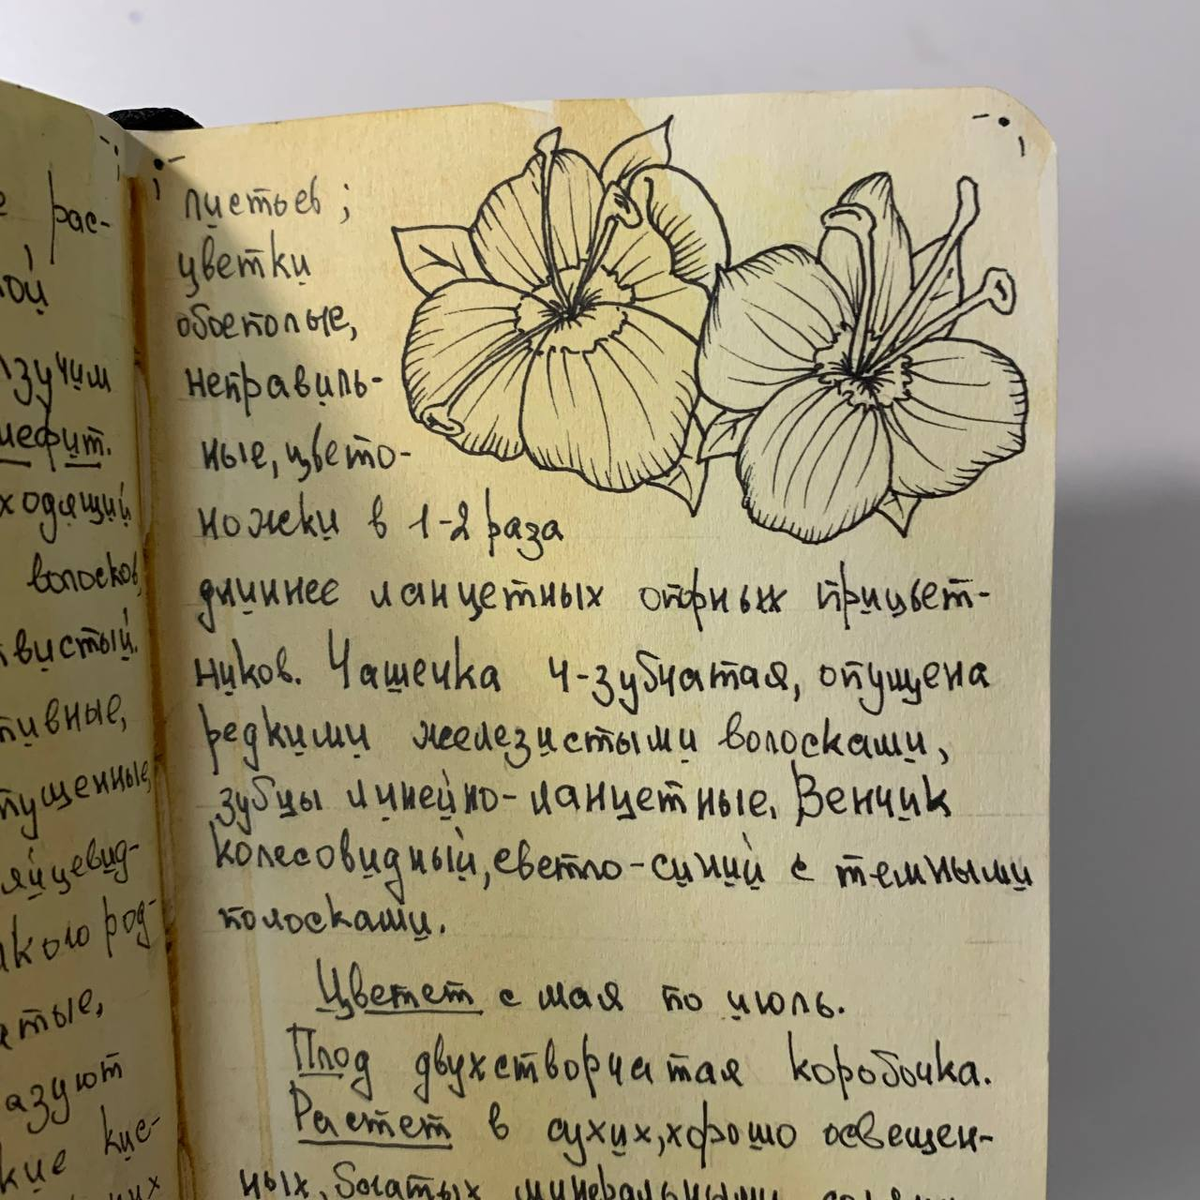 е рас-
ой
лзучим
мефит.
ходящий
волосков,
твистый.
тивные,
пущенные,
яйцевид-
лкого род-
атые,
азуют
кие кис-
них
листьев;
цветки
обоеполые,
неправиль-
ные, цвето-
ножки в 1-2 раза
длиннее ланцетных опорных прицвет-
ников. Чашечка 4-зубчатая, опущена
редкими железистыми волосками,
зубцы линейно-ланцетные. Венчик
колесовидный, светло-синий с темными
полосками.
Цветет с мая по июль.
Плод двухстворчатая коробочка.
Растет в сухих, хорошо освещен-
ных, богатых минеральными